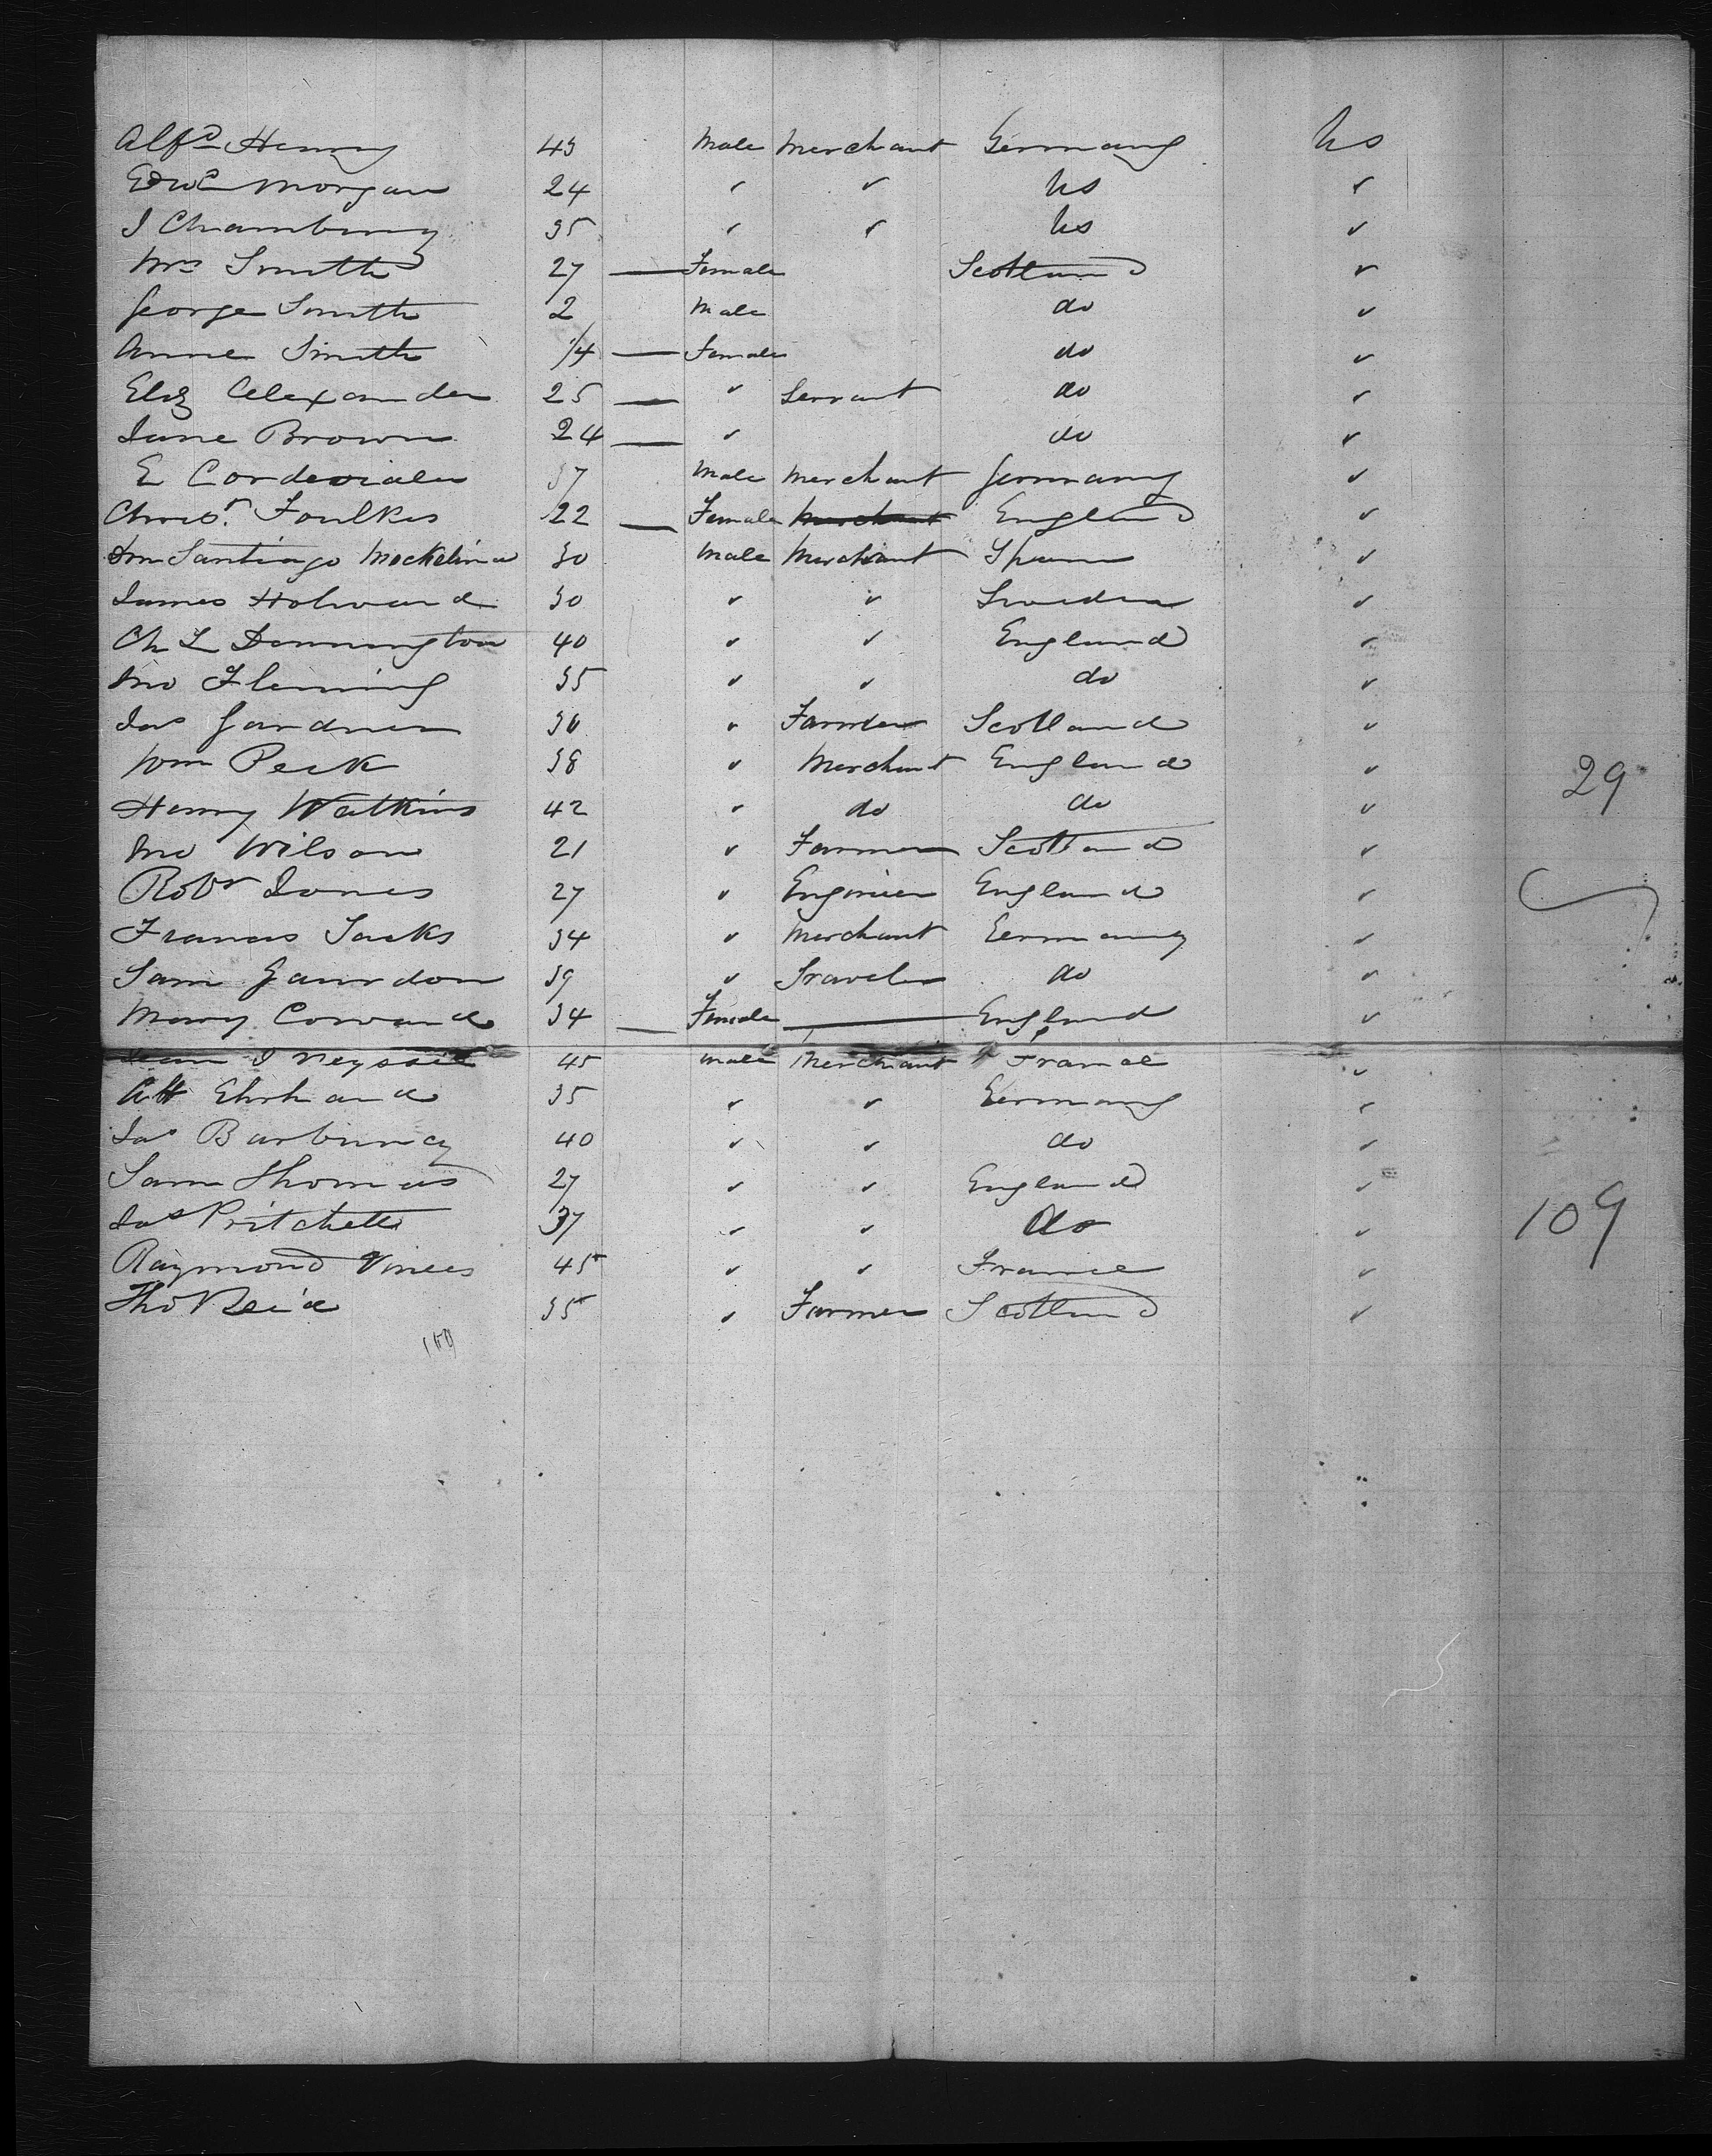 Alfd Henry 43 Male Merchant Germany Us
Edwd Morgan 24 " " Us "
J Chambury 35 " " Us "
Mrs Smith 27 — Female Scotland "
George Smith 2 Male do "
Anne Smith 1/4 — Female do "
Eliz Alexander 25 — " Servant do "
Jane Brown 24 — " do "
E 37 Male Merchant Germany "
Foulkes 22 — Female Merchant England "
Santiago 30 Male Merchant Spain "
James 30 " " Sweden "
Ch L Dennington 40 " " England "
Jno Fleming 35 " " do "
Jas Gardner 30 " Farmer Scotland "
Wm Peck 38 " Merchant England "
29
Henry Watkins 42 " do do "
Jno Wilson 21 " Farmer Scotland "
Robt Jones 27 " Engineer England "
Francis Sacks 34 " Merchant Germany "
Sam 39 " Traveler do "
Mary Coward 34 — Female — England "
45 Male Merchant France "
Ehrhard 35 " " Germany "
Jas 40 " " do "
Sam Thomas 27 " " England "
Jas Pritchett 37 " " Do "
109
Raymond Vinces 45 " " France "
Tho Reid 35 " Farmer Scotland "